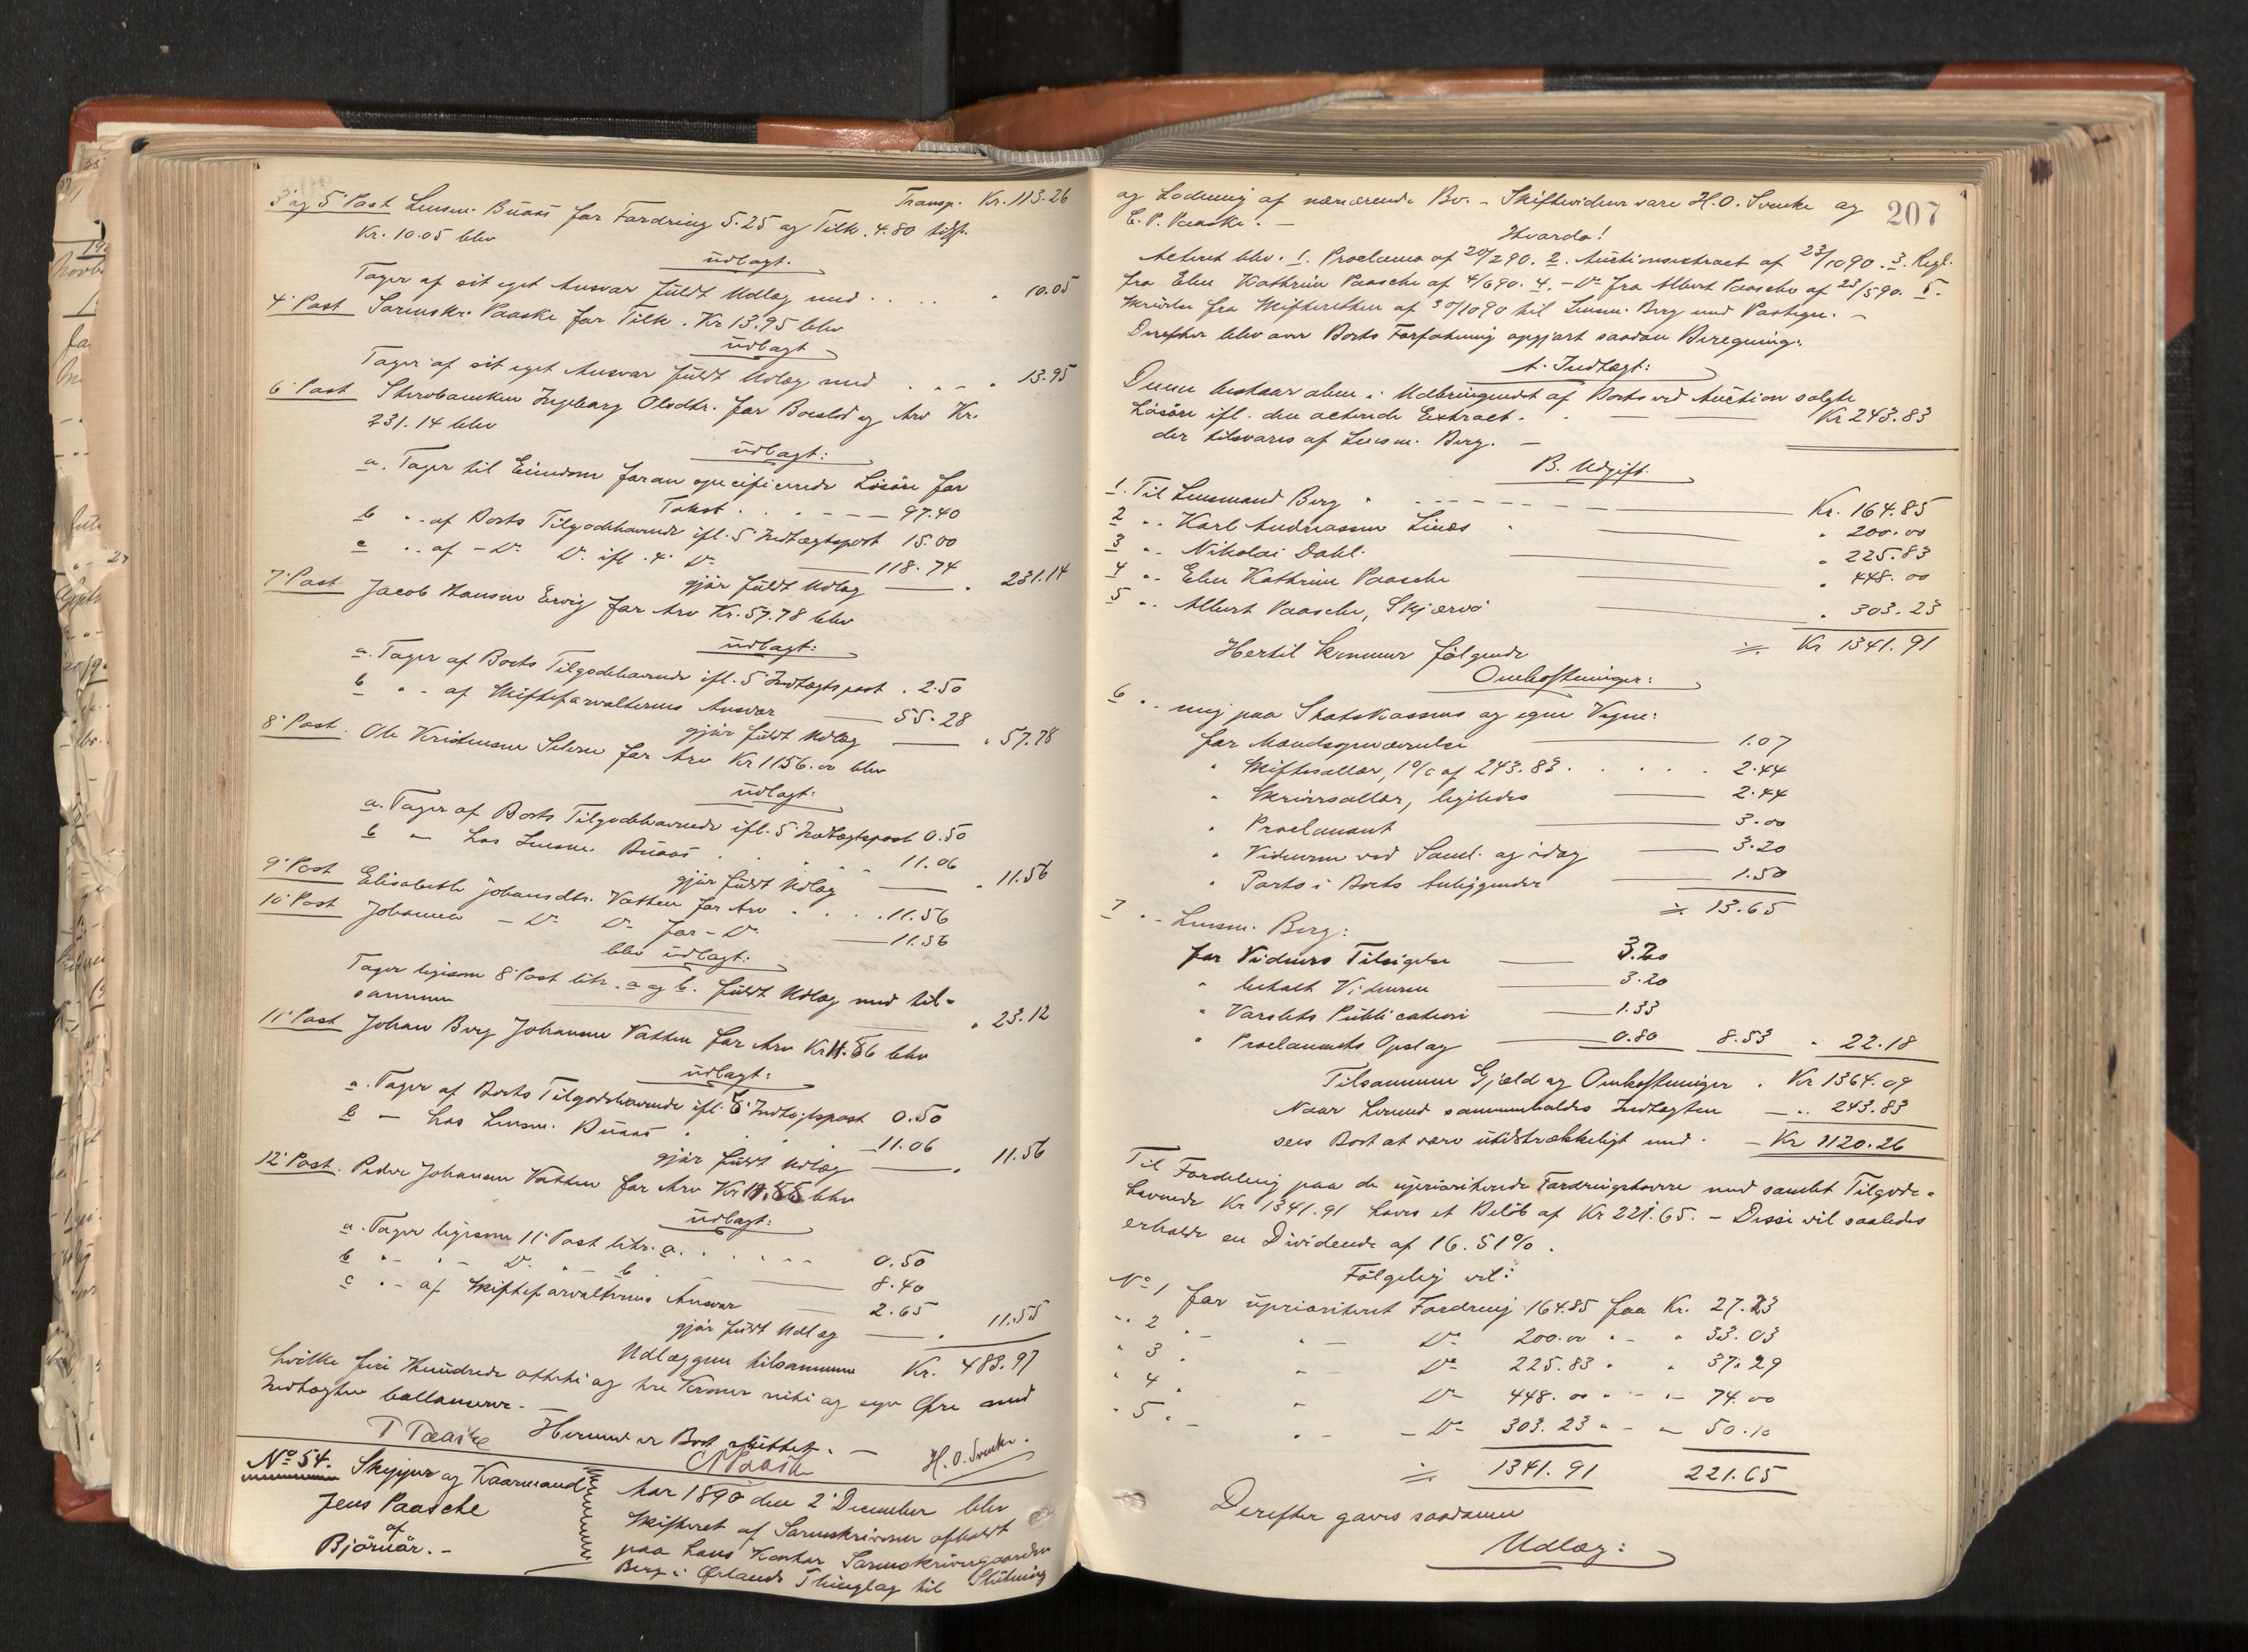 Transp. Kr. 113.26
3' og 5' Post Lensm. Buaas for Fordring 5.25 og Tilk. 4.80 tils.
Kr. 10.05 blev
udlagt.
Tager af sit eget Ansvar fuldt Udlæg med . . . . " 10.05
4' Post Sorenskr. Paaske for Tilk. Kr 13.95 blev
udlagt
Tager af sit eget Ansvar fuldt Udlæg med . . - " 13.95
6' Post Ingeborg Olsdtr. for Boeslod og Arv Kr.
231.14 blev
udlagt:
a. Tager til Eiendom foran specificerede Løsøre for
Takst . . . . — — — 97.40
b " - af Boets Tilgodehavende ifl. 5' Indtægtspost 15.00
c " - af - Do Do ifl. 4' Do — 118.74
gjør fuldt Udlæg — " 231.14
7' Post Jacob Hansen Ervig for Arv Kr. 57.78 blev
udlagt:
a. Tager af Boets Tilgodehavende ifl. 5' Indtægtspost . 2.50
b " - af Skifteforvalterens Ansvar — 55.28
gjør fuldt Udlæg — " 57.78
8' Post. Ole Kristensen for Arv Kr 1156.00 blev
udlagt:
a. Tager af Boets Tilgodehavende ifl. 5' Indtægtspost 0.50
b — hos Lensm. Buaas . . . . 11.06
gjør fuldt Udlæg — " 11.56
9' Post Elisabeth Johansdtr. Vatten for Arv . . . . 11.56
10' Post Johanna - Do Do for - Do — 11.56
blev udlagt:
Tager ligesom 8' Post litr. a og b. fuldt Udlæg med til-
sammen — " 23.12
11' Post Johan Berg Johansen Vatten for Arv Kr 11.56 blev
udlagt:
a. Tager af Boets Tilgodehavende ifl. 5' Indtægtspost 0.50
b — hos Lensm. Buaas . . . 11.06
gjør fuldt Udlæg — " 11.56
12' Post. Peder Johansen Vatten for Arv Kr 11.55 blev
udlagt:
a. Tager ligesom 11' Post litr. a. . . . . . 0.50
b " - " - Do " - b — 8.40
c " - af Skifteforvalterens Ansvar — 2.65
gjør fuldt Udlæg — " 11.55
Udlæggene tilsammen Kr. 483.97
hvilke fire Hundrede otteti og tre Kroner nitti og syv Øre med
Indtægten ballancerer. -
Hermed er Boet sluttet. —
T Paaske C P Paaske H. O. Svenke.
No 54. Skipper og Kaarmand
Jens Paasche
af
Bjørnør. -
Aar 1890 den 2' December blev
Skifteret af Sorenskriveren afholdt
paa hans Kontor Sorenskrivergaarden
Berg i Ørlands Thinglag til Slutning
207
og Lodning af nærværende Bo. - Skiftevidner vare H. O. Svenke og
C. P. Paaske. —
Hvorda!
Acteret blev. 1. Proclama af 20/2 90. 2. Auctionsextract af 23/10 90. 3. Regl.
fra Elen Kathrine Paasche af 4/6 90. 4. - Do fra Albert Paasche af 23/5 90. 5.
Skrivelse fra Skifteretten af 30/10 90 til Lensm. Berg med Paategn. -
Derefter blev over Boets Forfatning opgjort saadan Beregning:
A. Indtægt:
Denne bestaar alene i Udbringendet af Boets ved Auction solgte
Løsøre ifl. den acterede Extract. . — Kr 243.83
der tilsvares af Lensm. Berg. —
B. Udgift.
1. Til Lensmand Berg " — Kr. 164.85
2 " - Karl Andreassen Lines " — " 200.00
3 " - Nikolai Dahl. — " 225.83
4 " - Elen Kathrine Paasche — " 448.00
5 " - Albert Paasche, Skjærvø — " 303.23
÷ Kr 1341.91
Hertil kommer følgende
Omkostninger:
6 " - mig paa Statskassens og egne Vegne:
for — 1.07
" Skiftesallær, 1 % af 243.83 . . . . . 2.44
" Skriversallær, ligeledes — 2.44
" Proclamaet — 3.00
" Vidnerne ved Saml. og idag — 3.20
" Porto i Boets Anliggender — 1.50
÷ 13.65
7 " - Lensm. Berg:
for Vidners Tilsigelse — 3.20
" betalt Vidnerne — 3.20
" Varslets Publication — 1.33
" Proclamaets Opslag — 0.80 8.53 " 22.18
Tilsammen Gjæld og Omkostninger . Kr 1364.09
Naar hermed sammenholdes Indtægten — " 243.83
sees Boet at være utilstrækkeligt med . — Kr 1120.26
Til Fordeling paa de uprioriterede Fordringshavere med samlet Tilgode-
havende Kr 1341.91 haves et Beløb af Kr 221.65. - Disse vil saaledes
erholde en Dividende af 16.51 %.
Følgelig vil:
No 1 for uprioriteret Fordring 164.85 faa Kr. 27.23
" 2 " - " - Do 200.00 " - " 33.03
" 3 " " - Do 225.83 " " 37.29
" 4 " " Do 448.00 " - " - 74.00
" 5 " - " - - Do 303.23 " - " - 50.10
÷ 1341.91 221.65
Derefter gaves saadanne
Udlæg: